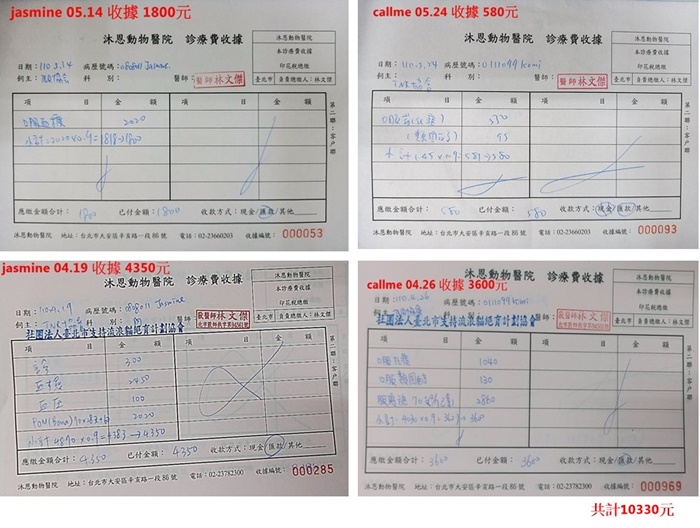 jasmine 05.14 收據 1800元
沐恩動物醫院 診療費收據
日期:110.5.14 病歷號碼:080811 Jasmine
飼主: 科別: 醫師:
醫師 林文傑
沐恩動物醫院
本診療費收據
印花稅總繳
臺北市 負責總繳人:林文傑
項目 金額 項目 金額
2020
小計:2020x0.9=1818→1800
第二聯:客戶聯
應繳金額合計:1800 已付金額:1800 收款方式:現金/匯款/其他
沐恩動物醫院 地址:台北市大安區辛亥路一段86號 電話:02-23660203 收據編號:000053
callme 05.24 收據 580元
沐恩動物醫院 診療費收據
日期:110.5.24 病歷號碼:0111099 Komi
飼主: 科別: 醫師:
醫師 林文傑
沐恩動物醫院
本診療費收據
印花稅總繳
臺北市 負責總繳人:林文傑
項目 金額 項目 金額
小計:645x0.9=581→580
第二聯:客戶聯
應繳金額合計:580 已付金額:580 收款方式:現金/匯款/其他
沐恩動物醫院 地址:台北市大安區辛亥路一段86號 電話:02-23660203 收據編號:000093
jasmine 04.19 收據 4350元
沐恩動物醫院 診療費收據
日期:110.4.19 病歷號碼:080811 Jasmine
飼主: 科別:
獸醫師 林文傑
社團法人臺北市支持流浪貓絕育計劃協會
沐恩動物醫院
本診療費收據
印花稅總繳
臺北市 負責總繳人:林文傑
項目 金額 項目 金額
300
血檢 2450
血压 100
2020
小計:4870x0.9=4383→4350
第二聯:客戶聯
應繳金額合計:4350 已付金額:4350 收款方式:現金/匯款/其他
沐恩動物醫院 地址:台北市大安區辛亥路一段86號 電話:02-23782300 收據編號:000285
callme 04.26 收據 3600元
沐恩動物醫院 診療費收據
日期:110.4.26 病歷號碼:0111099 Komi
飼主: 科別:
獸醫師 林文傑
社團法人臺北市支持流浪貓絕育計劃協會
沐恩動物醫院
本診療費收據
印花稅總繳
臺北市 負責總繳人:林文傑
項目 金額 項目 金額
1040
130
2860
第二聯:客戶聯
應繳金額合計:3600 已付金額:3600 收款方式:現金/匯款/其他
沐恩動物醫院 地址:台北市大安區辛亥路一段86號 電話:02-23782300 收據編號:000969
共計10330元